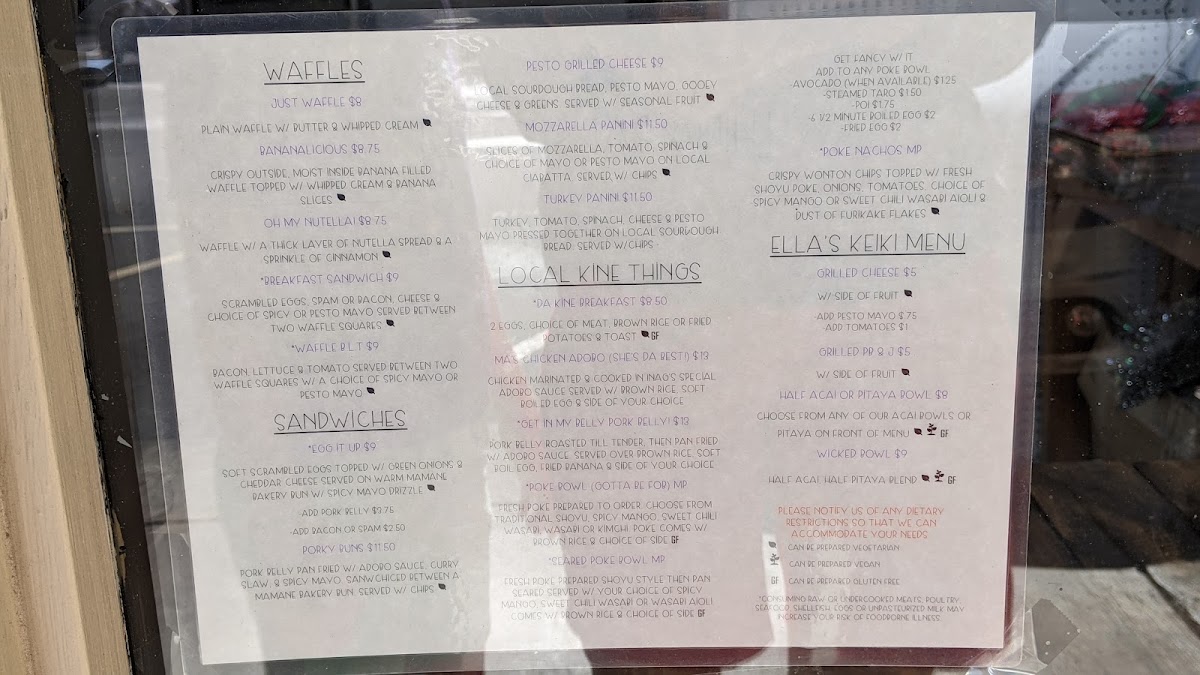 WAFFLES
JUST WAFFLE $8
PLAIN WAFFLE W/ BUTTER & WHIPPED CREAM
BANANALICIOUS $8.75
CRISPY OUTSIDE, MOIST INSIDE BANANA FILLED
WAFFLE TOPPED W/ WHIPPED CREAM & BANANA
SLICES
OH MY NUTELLA! $8.75
WAFFLE W/ A THICK LAYER OF NUTELLA SPREAD & A
SPRINKLE OF CINNAMON
*BREAKFAST SANDWICH $9
SCRAMBLED EGGS, SPAM OR BACON, CHEESE &
CHOICE OF SPICY OR PESTO MAYO SERVED BETWEEN
TWO WAFFLE SQUARES
*WAFFLE B.L.T $9
BACON, LETTUCE & TOMATO SERVED BETWEEN TWO
WAFFLE SQUARES W/ A CHOICE OF SPICY MAYO OR
PESTO MAYO
SANDWICHES
*EGG IT UP $9
SOFT SCRAMBLED EGGS TOPPED W/ GREEN ONIONS &
CHEDDAR CHEESE SERVED ON WARM MAMANE
BAKERY BUN W/ SPICY MAYO DRIZZLE
ADD PORK BELLY $3.75
ADD BACON OR SPAM $2.50
PORKY BUNS $11.50
PORK BELLY PAN FRIED W/ ADOBO SAUCE, CURRY
SLAW, & SPICY MAYO. SANWCHICED BETWEEN A
MAMANE BAKERY BUN. SERVED W/ CHIPS
PESTO GRILLED CHEESE $9
LOCAL SOURDOUGH BREAD, PESTO MAYO, GOOEY
CHEESE & GREENS. SERVED W/ SEASONAL FRUIT
MOZZARELLA PANINI $11.50
SLICES OF MOZZARELLA, TOMATO, SPINACH &
CHOICE OF MAYO OR PESTO MAYO ON LOCAL
CIABATTA. SERVED W/ CHIPS
TURKEY PANINI $11.50
TURKEY, TOMATO, SPINACH, CHEESE & PESTO
MAYO PRESSED TOGETHER ON LOCAL SOURDOUGH
BREAD. SERVED W/CHIPS
LOCAL KINE THINGS
*DA KINE BREAKFAST $8.50
2 EGGS, CHOICE OF MEAT, BROWN RICE OR FRIED
POTATOES & TOAST GF
MA'S CHICKEN ADOBO (SHE'S DA BEST!) $13
CHICKEN MARINATED & COOKED IN INAG'S SPECIAL
ADOBO SAUCE SERVED W/ BROWN RICE, SOFT
BOILED EGG & SIDE OF YOUR CHOICE
*GET IN MY BELLY PORK BELLY! $13
PORK BELLY ROASTED TILL TENDER, THEN PAN FRIED
W/ ADOBO SAUCE. SERVED OVER BROWN RICE, SOFT
BOIL EGG, FRIED BANANA & SIDE OF YOUR CHOICE
*POKE BOWL (GOTTA BE FOB) MP
FRESH POKE PREPARED TO ORDER. CHOOSE FROM
TRADITIONAL SHOYU, SPICY MANGO, SWEET CHILI
WASABI, WASABI OR KIMCHI. POKE COMES W/
BROWN RICE & CHOICE OF SIDE GF
*SEARED POKE BOWL MP
FRESH POKE PREPARED SHOYU STYLE THEN PAN
SEARED SERVED W/ YOUR CHOICE OF SPICY
MANGO, SWEET CHILI WASABI OR WASABI AIOLI
COMES W/ BROWN RICE & CHOICE OF SIDE GF
GET FANCY W/ IT
ADD TO ANY POKE BOWL
-AVOCADO (WHEN AVAILABLE) $1.25
-STEAMED TARO $1.50
-POI $1.75
-6 1/2 MINUTE BOILED EGG $2
-FRIED EGG $2
*POKE NACHOS MP
CRISPY WONTON CHIPS TOPPED W/ FRESH
SHOYU POKE, ONIONS, TOMATOES, CHOICE OF
SPICY MANGO OR SWEET CHILI WASABI AIOLI &
DUST OF FURIKAKE FLAKES
ELLA'S KEIKI MENU
GRILLED CHEESE $5
W/ SIDE OF FRUIT
ADD PESTO MAYO $.75
ADD TOMATOES $1
GRILLED PB & J $5
W/ SIDE OF FRUIT
HALF ACAI OR PITAYA BOWL $8
CHOOSE FROM ANY OF OUR ACAI BOWLS OR
PITAYA ON FRONT OF MENU GF
WICKED BOWL $9
HALF ACAI, HALF PITAYA BLEND GF
PLEASE NOTIFY US OF ANY DIETARY
RESTRICTIONS SO THAT WE CAN
ACCOMMODATE YOUR NEEDS
CAN BE PREPARED VEGETARIAN
CAN BE PREPARED VEGAN
GF CAN BE PREPARED GLUTEN FREE
*CONSUMING RAW OR UNDERCOOKED MEATS, POULTRY,
SEAFOOD, SHELLFISH, EGGS OR UNPASTEURIZED MILK MAY
INCREASE YOUR RISK OF FOODBORNE ILLNESS.